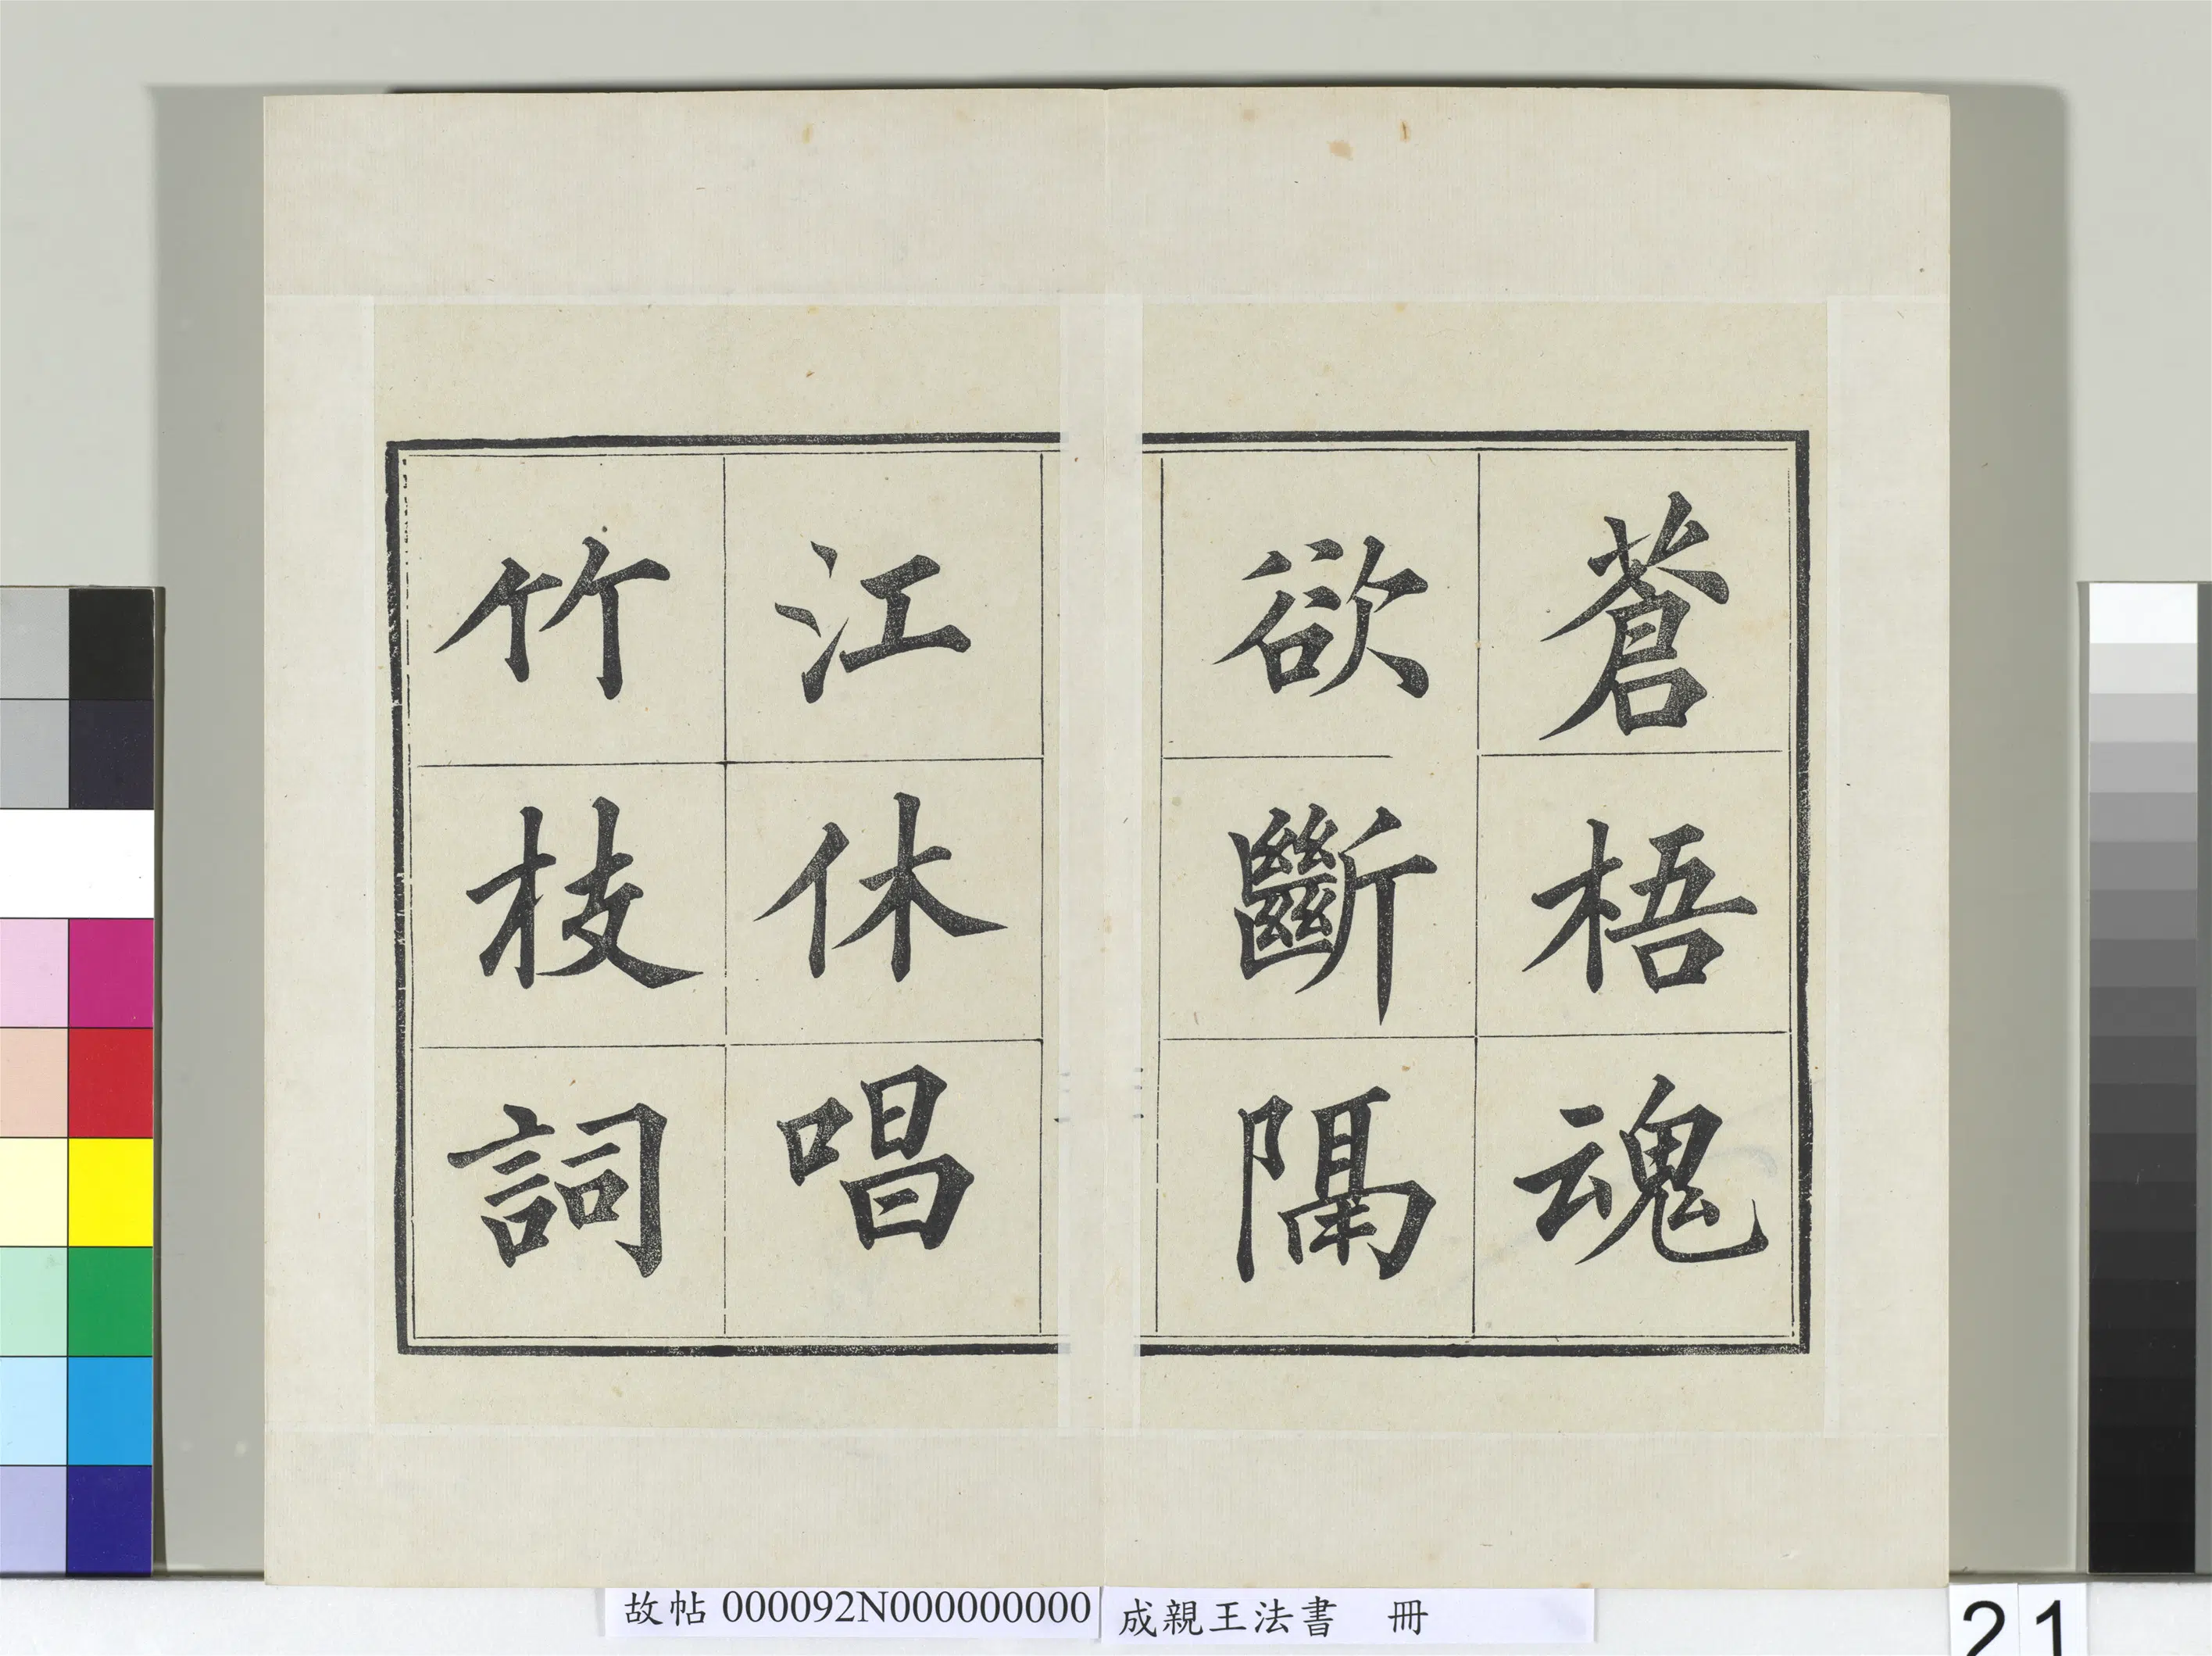 蒼梧魂
欲斷隔
江休唱
竹枝詞
故帖 000092N000000000
成親王法書 冊
21